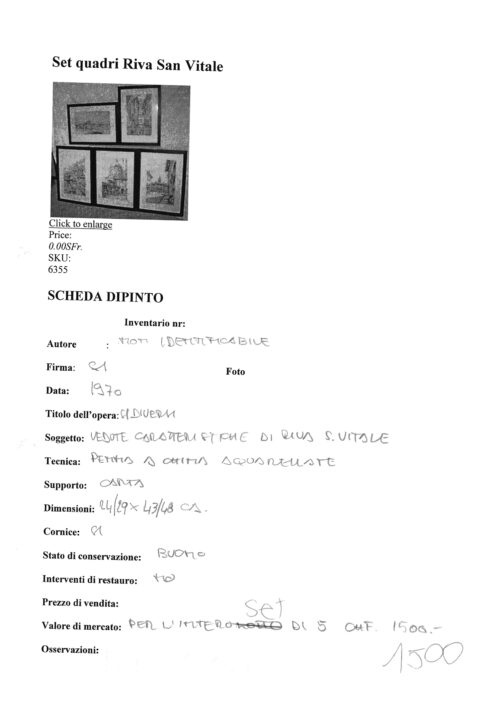 Set quadri Riva San Vitale
Click to enlarge
Price:
0.00SFr.
SKU:
6355
SCHEDA DIPINTO
Inventario nr:
Autore : NON IDENTIFICABILE
Firma: SI
Foto
Data: 1970
Titolo dell'opera: DIVERSI
Soggetto: VEDUTE CARATTERISTICHE DI RIVA S. VITALE
Tecnica: PENNA A CHINA ACQUARELLATE
Supporto: CARTA
Dimensioni: 24/29 x 43/48 CA.
Cornice: SI
Stato di conservazione: BUONO
Interventi di restauro: NO
Prezzo di vendita:
Set
Valore di mercato: PER L'INTERO DI 5 CHF. 1500.-
1500
Osservazioni: